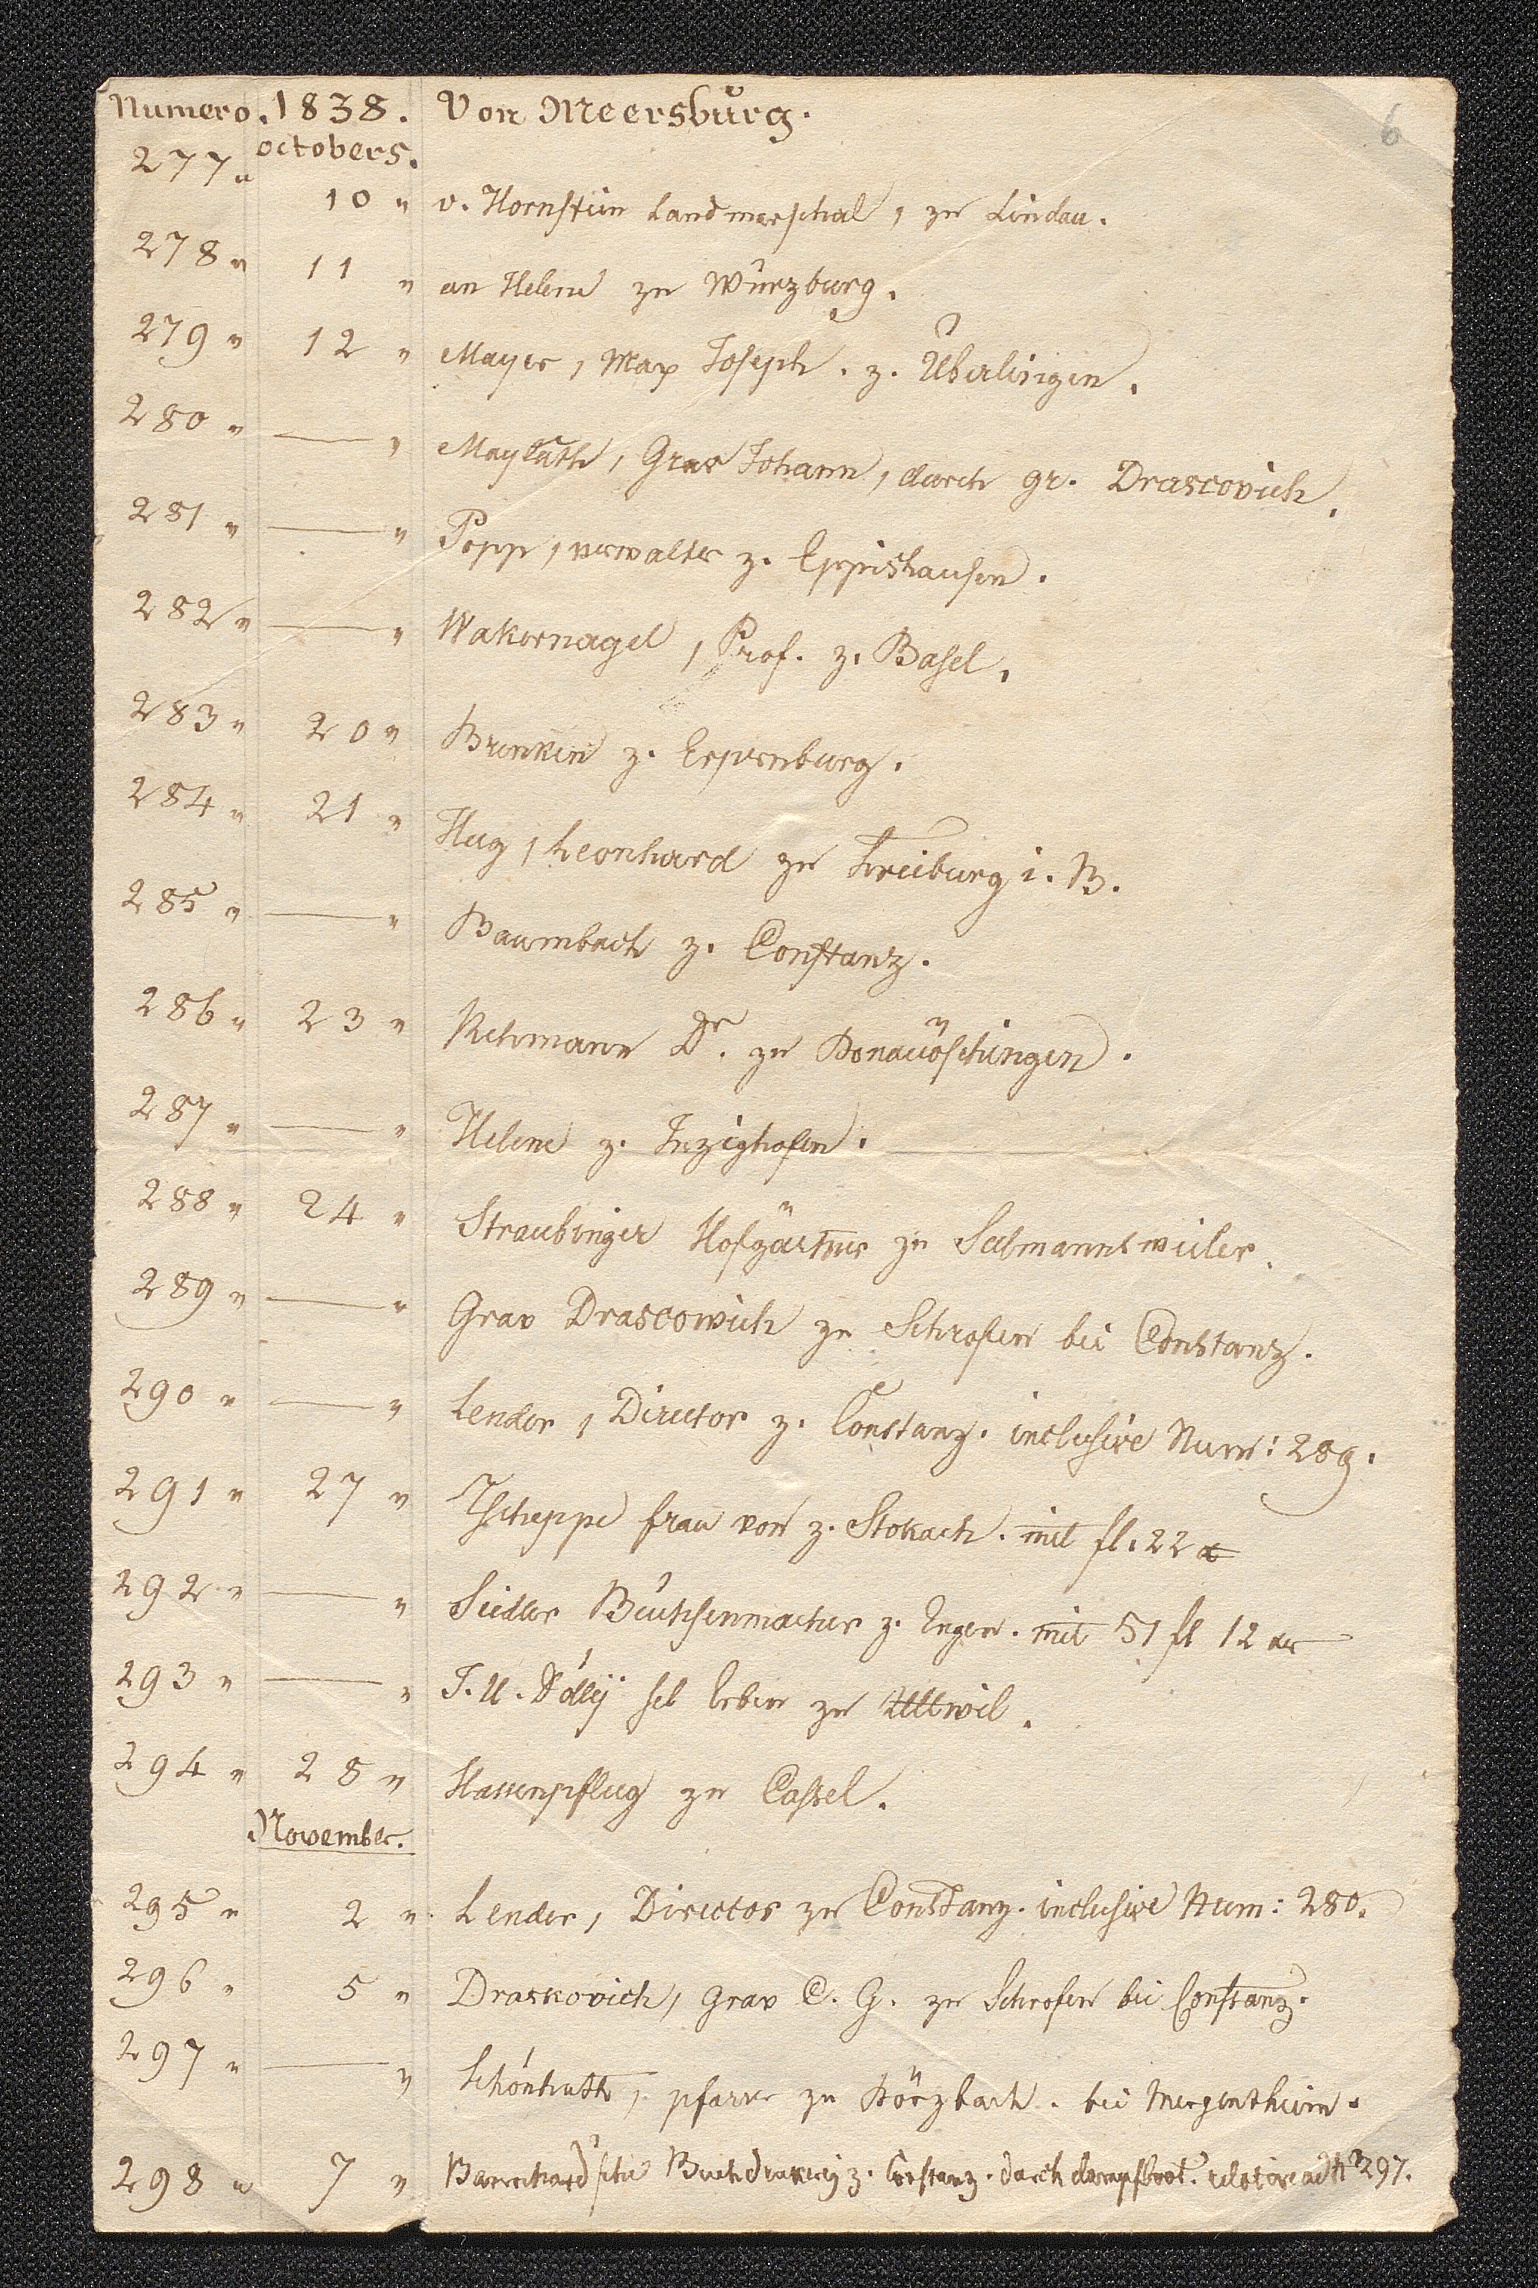 6
Numero. 1838. Von Meersburg.
octobers.
277 " 10 " v. Hornstein Landmarschal, zu Lindau.
278 " 11 " an Helene zu Würzburg.
279 " 12 " Mayer, Max Joseph. z. Überlingen.
280 " — " Maylath, Grav Johann, durch gr. Drascovich.
281 " — " Popp, verwalter z. Eppishausen.
282 " — " Wakernagel, Prof. z. Basel.
283 " 20 " Brenken z. Erpernburg.
284 " 21 " Hug, Leonhard zu Freiburg i. B.
285 " — " Baumbach z. Constanz.
286 " 23 " Rehmann Dr. zu Donauöschingen.
287 " — " Helene z. Inzighofen.
288 " 24 " Straubinger Hofgärtner zu Salmannsweiler.
289 " — " Grav Drascowich zu Schrofen bei Constanz.
290 " — " Lender, Director z. Constanz. inclusive Num: 289.
291 " 27 " Tscheppe frau von z. Stokach. mit fl. 22
292 " — " Siedler Büchsenmacher z. Engen. mit 51 fl 12 xr
293 " — " J. U. Dölly sel Erben zu Uttwil.
294 " 28 " Hassenpflug zu Cassel.
November.
295 " 2 " Lender, Director zu Constanz. inclusive Num: 280.
296 " 5 " Draskovich, Grav C. G. zu Schrofen bei Constanz.
297 " — " Schönhuth, pfarrr zu Dörzbach. bei Mergentheim.
298 " 7 " Bannhard'sche Buchdrukerey z. Constanz. durch dampfboot. relative ad N° 297.